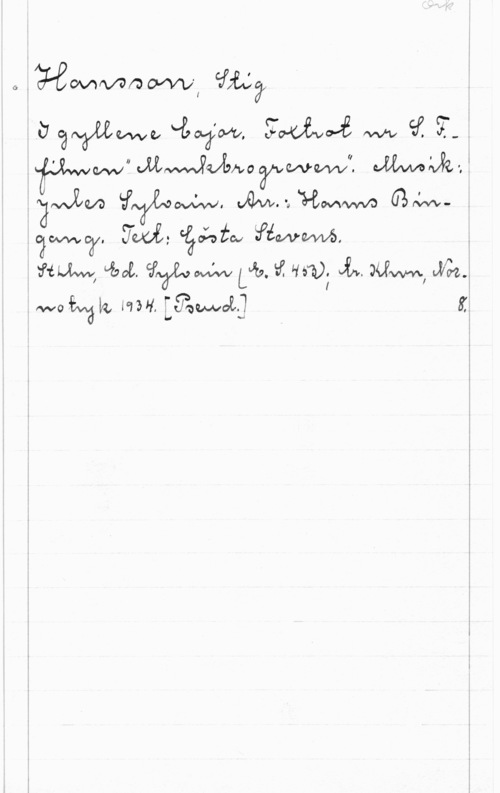 Ork
Hansson, Stig
I gyllene bojor. Foxtrot ur S. F.-
filmen "Munkbrogreven". Musik:
Jules Sylvain. Arr.: Hanns Bin-
gang. Text: Gösta Stevens.
Sthlm, Ed. Sylvain (E. S. 453); tr. Khvn, Noe.
notryk 1934. [Pseud.] 8: